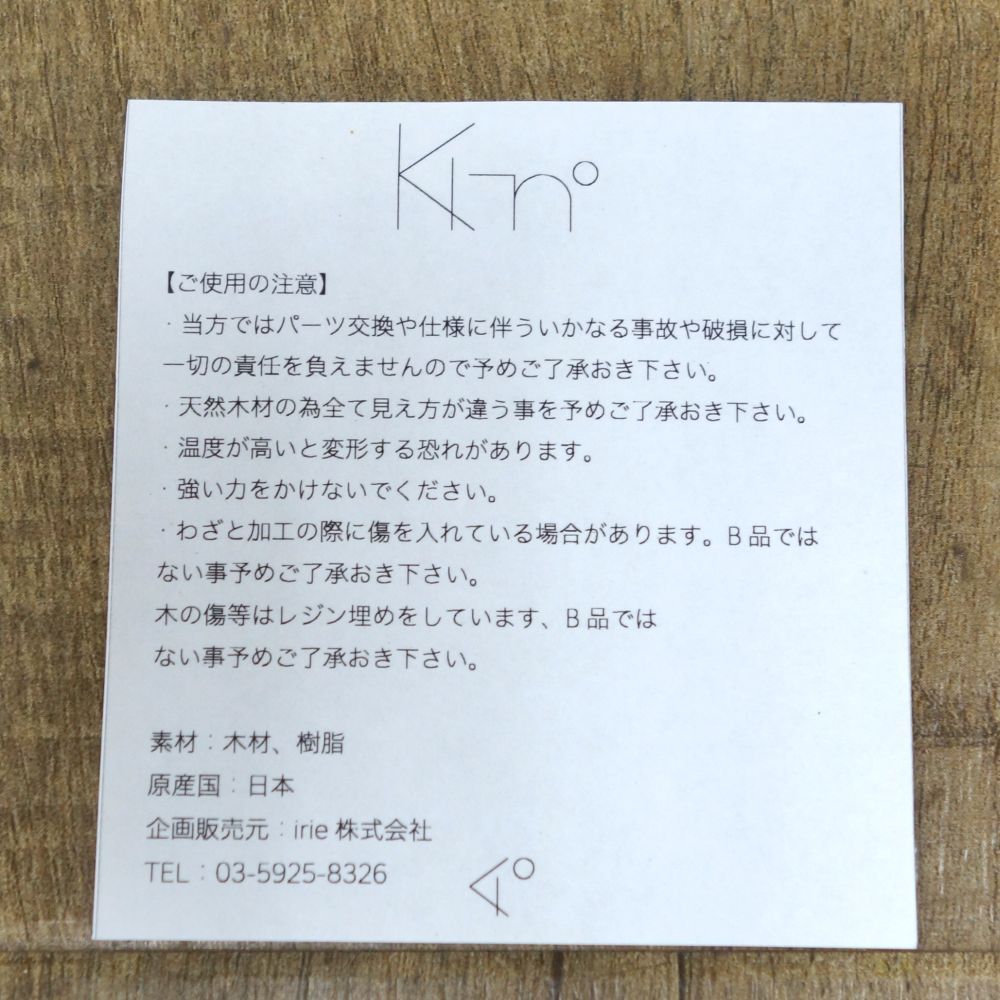 Kino
【ご使用の注意】
・当方ではパーツ交換や仕様に伴ういかなる事故や破損に対して
一切の責任を負えませんので予めご了承おき下さい。
・天然木材の為全て見え方が違う事を予めご了承おき下さい。
・温度が高いと変形する恐れがあります。
・強い力をかけないでください。
・わざと加工の際に傷を入れている場合があります。B品では
ない事予めご了承おき下さい。
木の傷等はレジン埋めをしています、B品では
ない事予めご了承おき下さい。
素材：木材、樹脂
原産国：日本
企画販売元：irie 株式会社
TEL：03-5925-8326